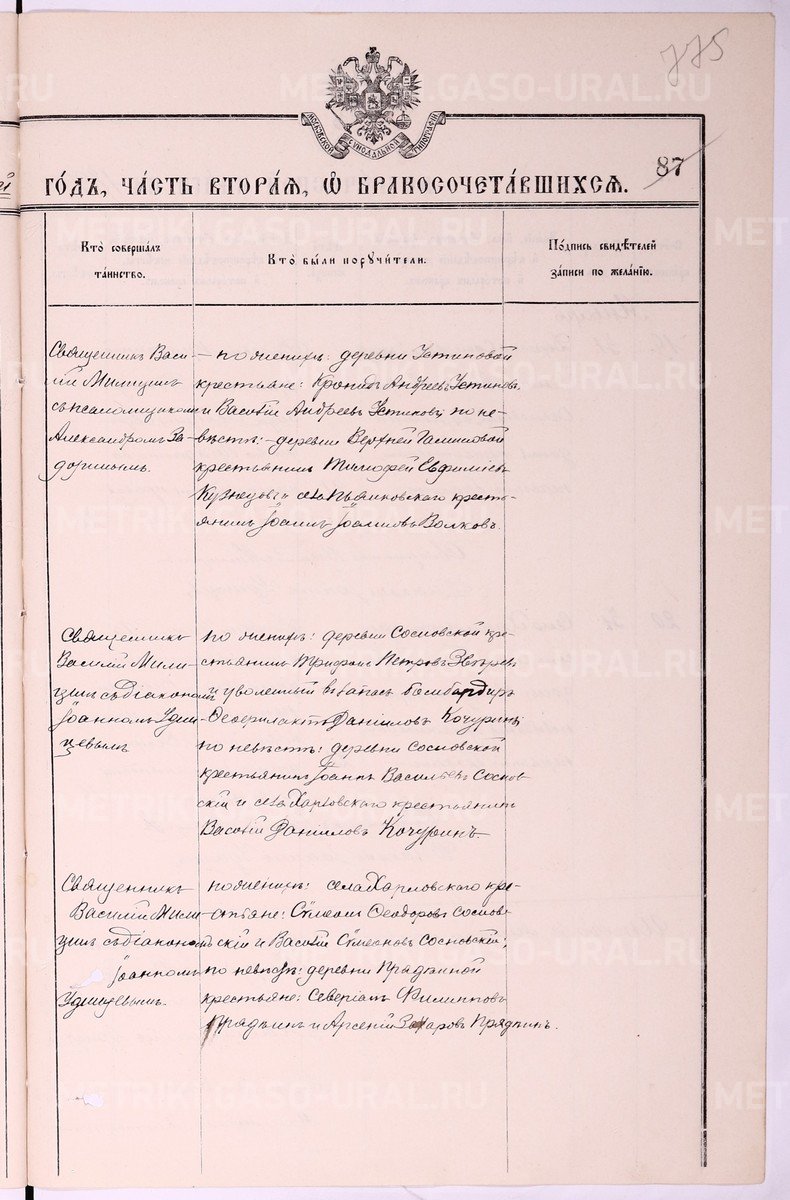 775
МОСКОВСКОЙ СѴНОДАЛЬНОЙ ТИПОГРАФІИ
87
ГО́ДЪ, ЧА́СТЬ ВТОРА́Я, Ѽ БРАКОСОЧЕТА́ВШИХСЯ.
Кто̀ соверша́лъ
та́инство.
Кто̀ бы́ли порꙋчи́тели.
По́дпись свидѣ́телей
за́писи по жела́нїю.
Священникъ Васи-
лій Милицинъ
съ псаломщикомъ
Александромъ За-
дориным.
по женихѣ: деревни Устиновой
крестьяне: Андреевъ Устиновъ
и Василій Андреевъ Устиновъ, по не-
вѣстѣ: деревни Верхней
крестьянинъ Тимофей Евфиміевъ
Кузнецовъ и села крест-
янинъ Іоаннъ Іоанновъ Волковъ.
Священникъ
Василій Мили-
цинъ съ діакономъ
Іоанномъ Удин-
цевымъ
по женихѣ: деревни Сосновской кре-
стьянинъ Трифонъ Петровъ Звѣревъ
и уволенный въ запасъ бомбардиръ
Ѳеофилактъ Даниловъ Кочуринъ,
по невѣстѣ: деревни Сосновской
крестьянинъ Іоаннъ Васильевъ Соснов-
скій и села Харловскаго крестьянинъ
Василій Даниловъ Кочуринъ.
Священникъ
Василій Мили-
цинъ съ діакономъ
Іоанномъ
Удинцевымъ.
по женихѣ: села Харловскаго кре-
стьяне: Сѵмеонъ Ѳеодоровъ Соснов-
скій и Василій Сѵмеоновъ Сосновскій;
по невѣстѣ: деревни Прядкиной
крестьяне: Северіанъ Филипповъ
Прядкинъ и Арсеній Захаровъ Прядкинъ.
METRIKI.GASO-URAL.RU